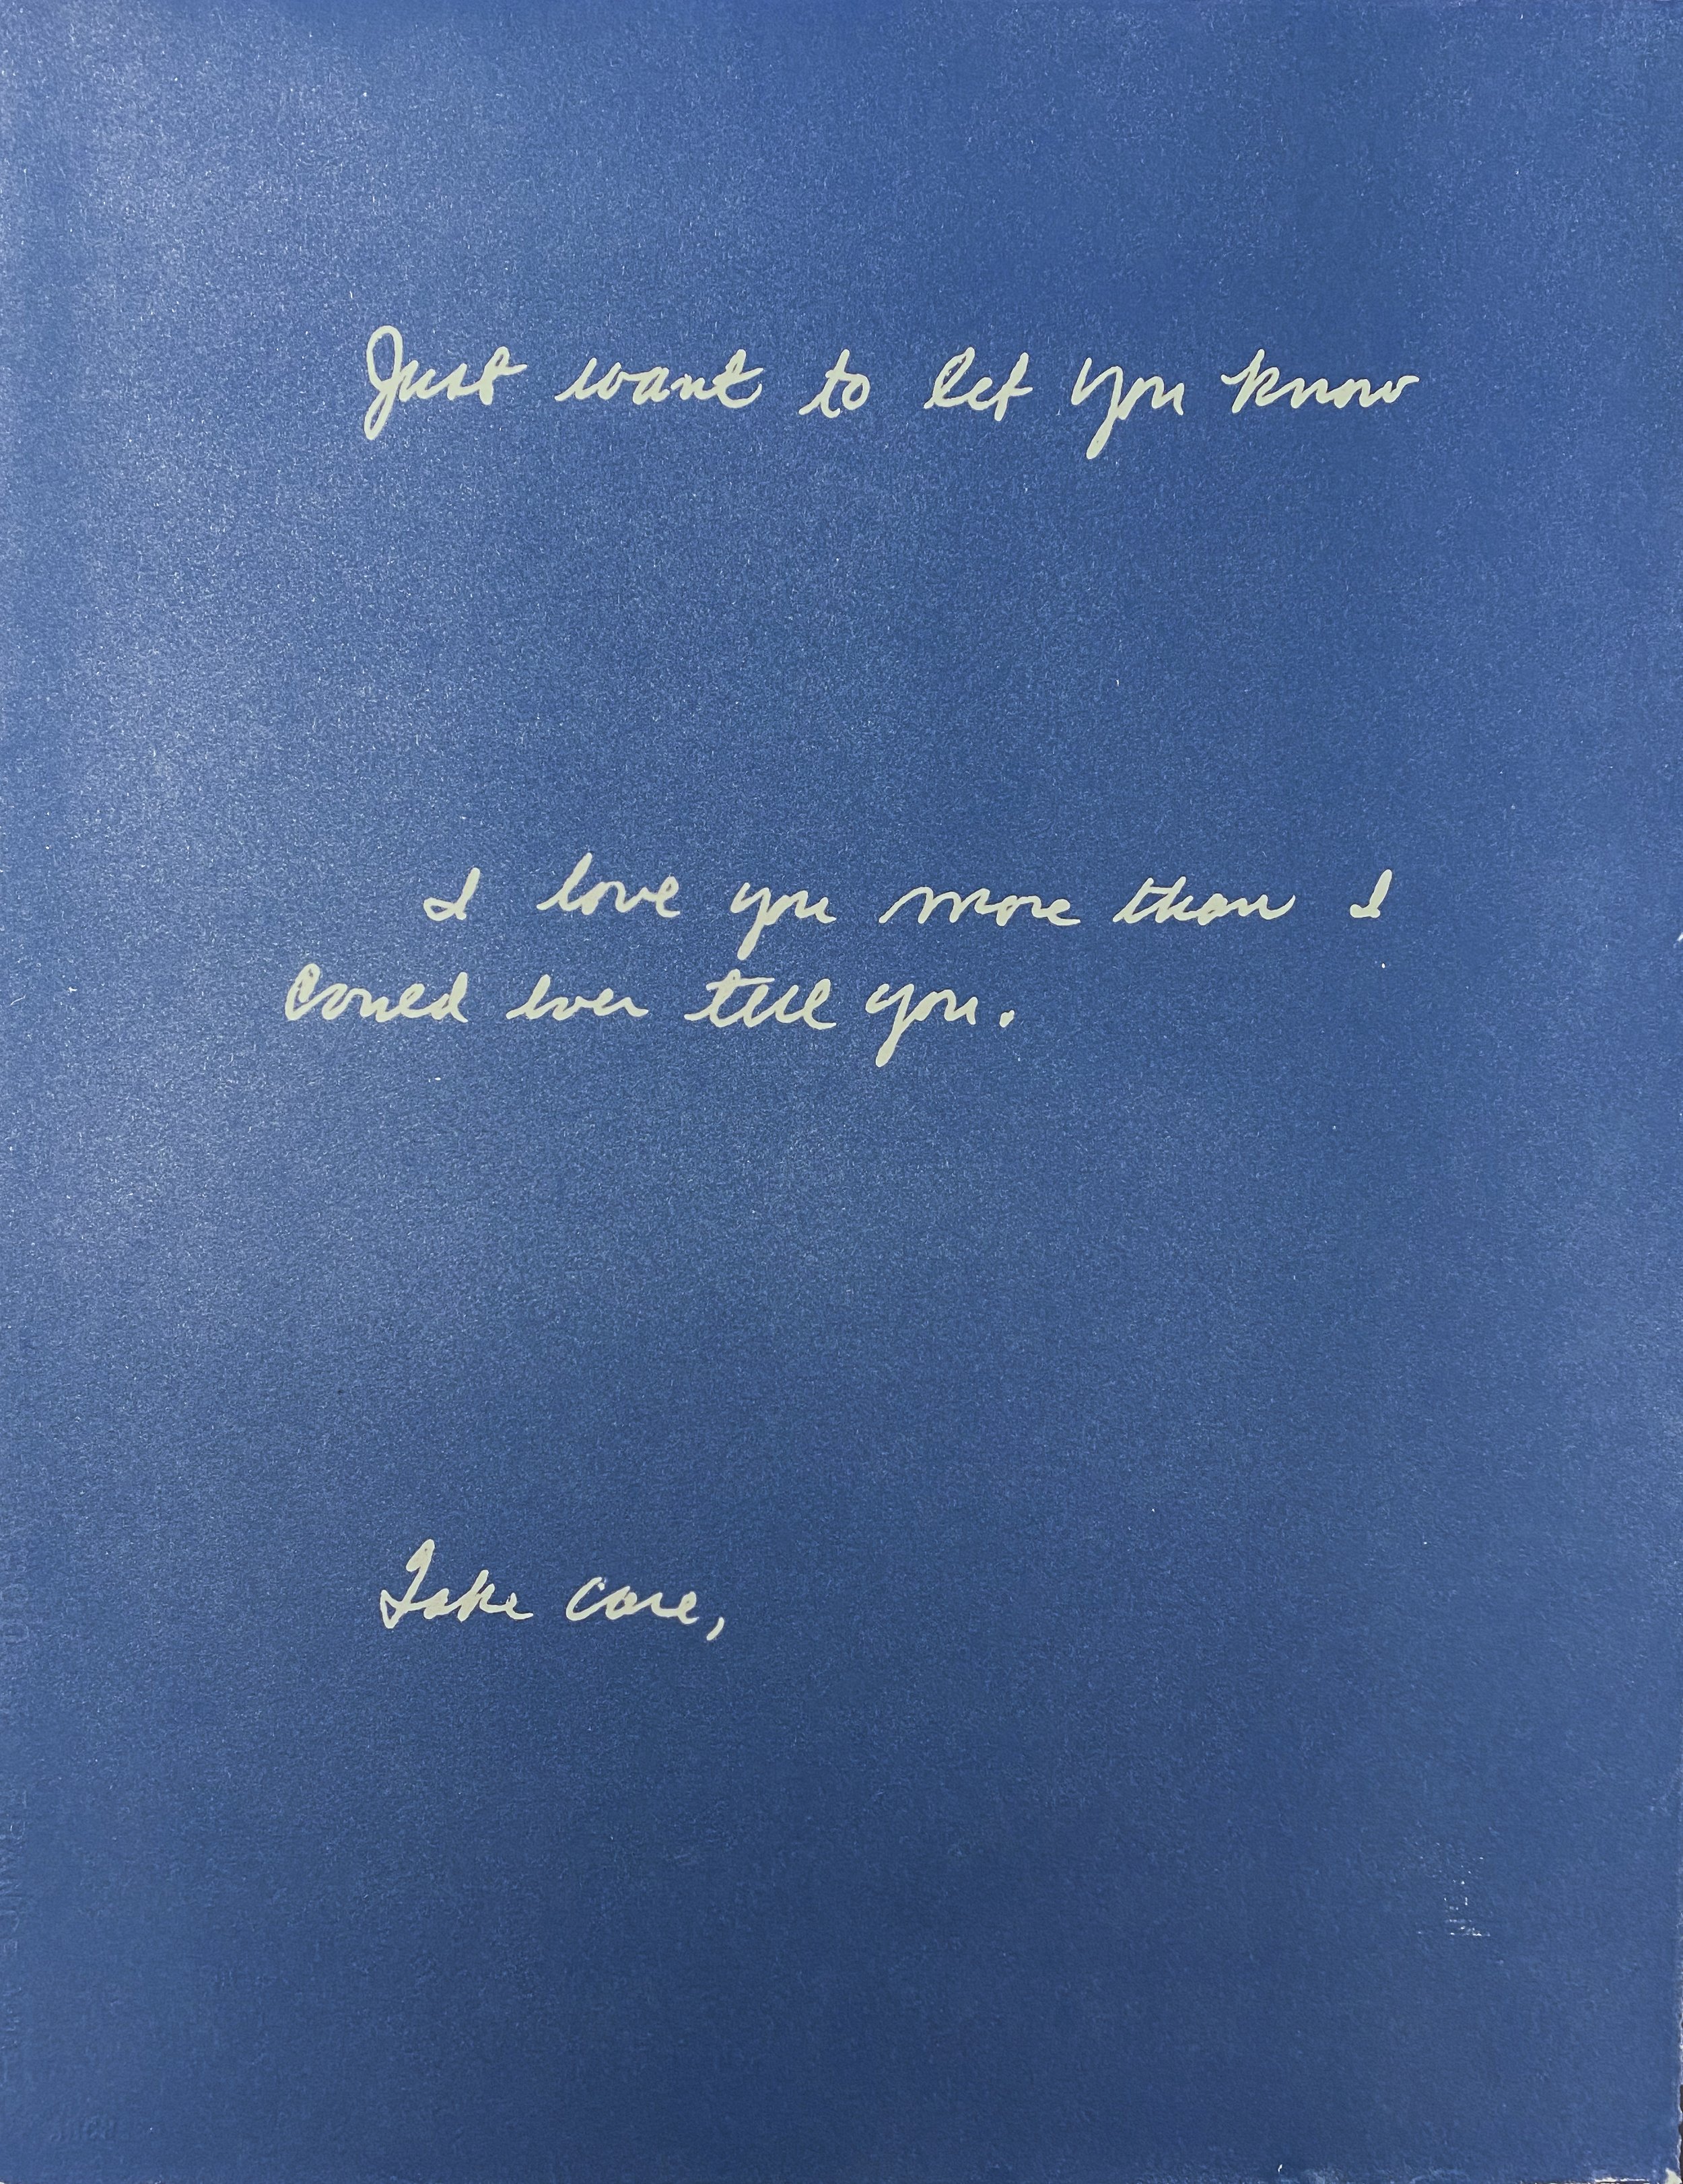 Just want to let you know
I love you more than I
could ever tell you.
Take care,